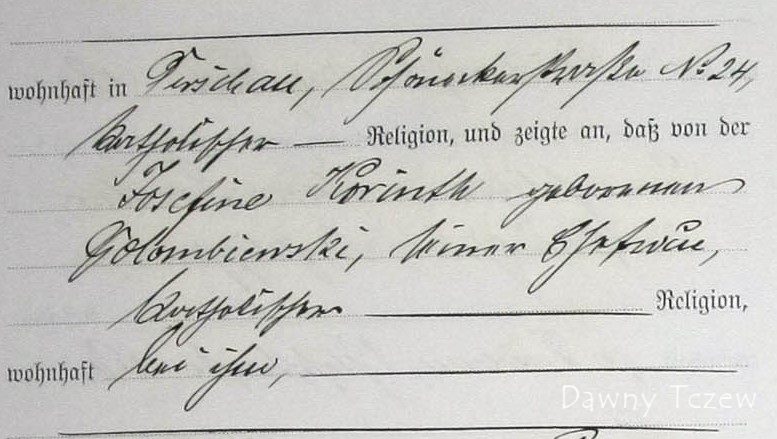 wohnhaft in Dirschau, Schöneckerstraße No 24,
katholischer — Religion, und zeigte an, daß von der
Josefine Korinth geborenen
Golombiewski, seiner Ehefrau,
katholischer — Religion,
wohnhaft bei ihm,
Dawny Tczew